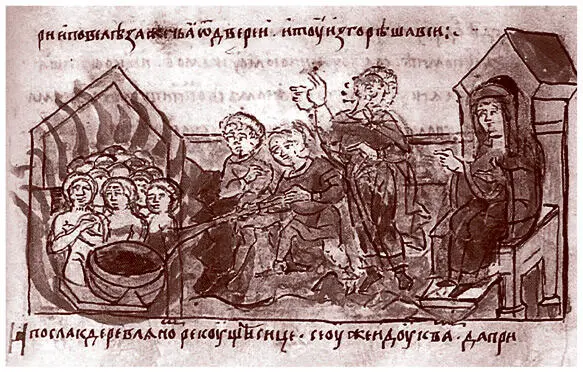 ри и повелѣ зажечь ꙗ ѿ дверей · и тоу изгорѣша вси :·
И посла к деревлѧноⷨ рекоущи сице · се оуже идоу к ваⷨ · да при